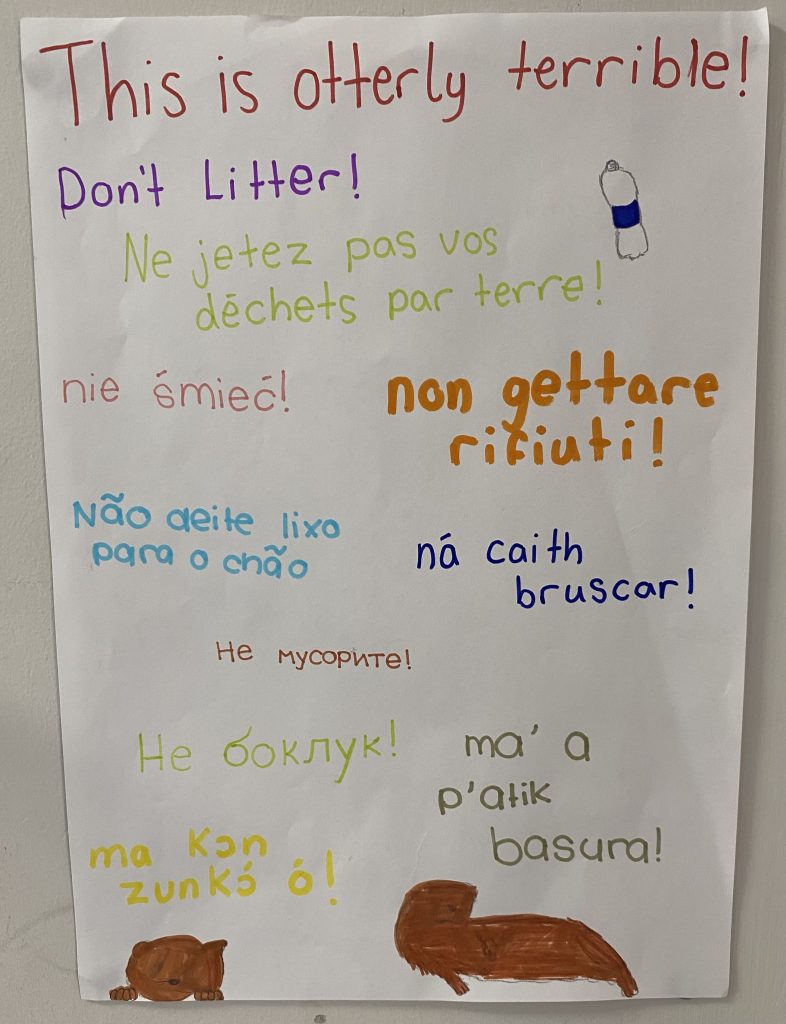 This is otterly terrible!
Don't Litter!
Ne jetez pas vos
déchets par terre!
nie śmieć!
non gettare
rifiuti!
Não deite lixo
para o chão
ná caith
bruscar!
Не мусорите!
Не боклук!
ma' a
p'atik
basura!
ma kɔn
zunkɔ́ ó!